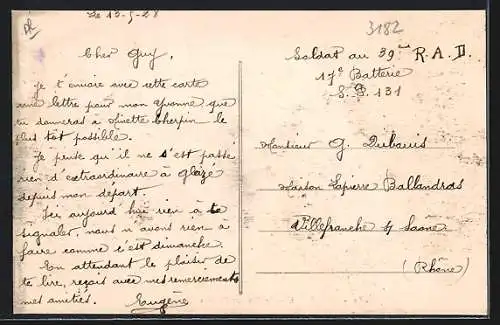 Le 13-5-28
3182
Cher Guy,
Je t'envoie avec cette carte
une lettre pour mon Yvonne que
tu donneras à Ginette Cherpin le
plus tôt possible.
Je pense qu'il ne s'est passé
rien d'extraordinaire à glaze
depuis mon départ.
Ici aujourd'hui rien à te
signaler, nous n'avons rien à
faire comme c'est dimanche.
En attendant le plaisir de
te lire, reçois avec mes remerciements
mes amitiés.
Eugène
Soldat au 39ème R.A.D.
17e Batterie
S.P. 131
Monsieur G. Dubouis
Maison Lapierre Ballandras
Villefranche s/ Saône
(Rhône)